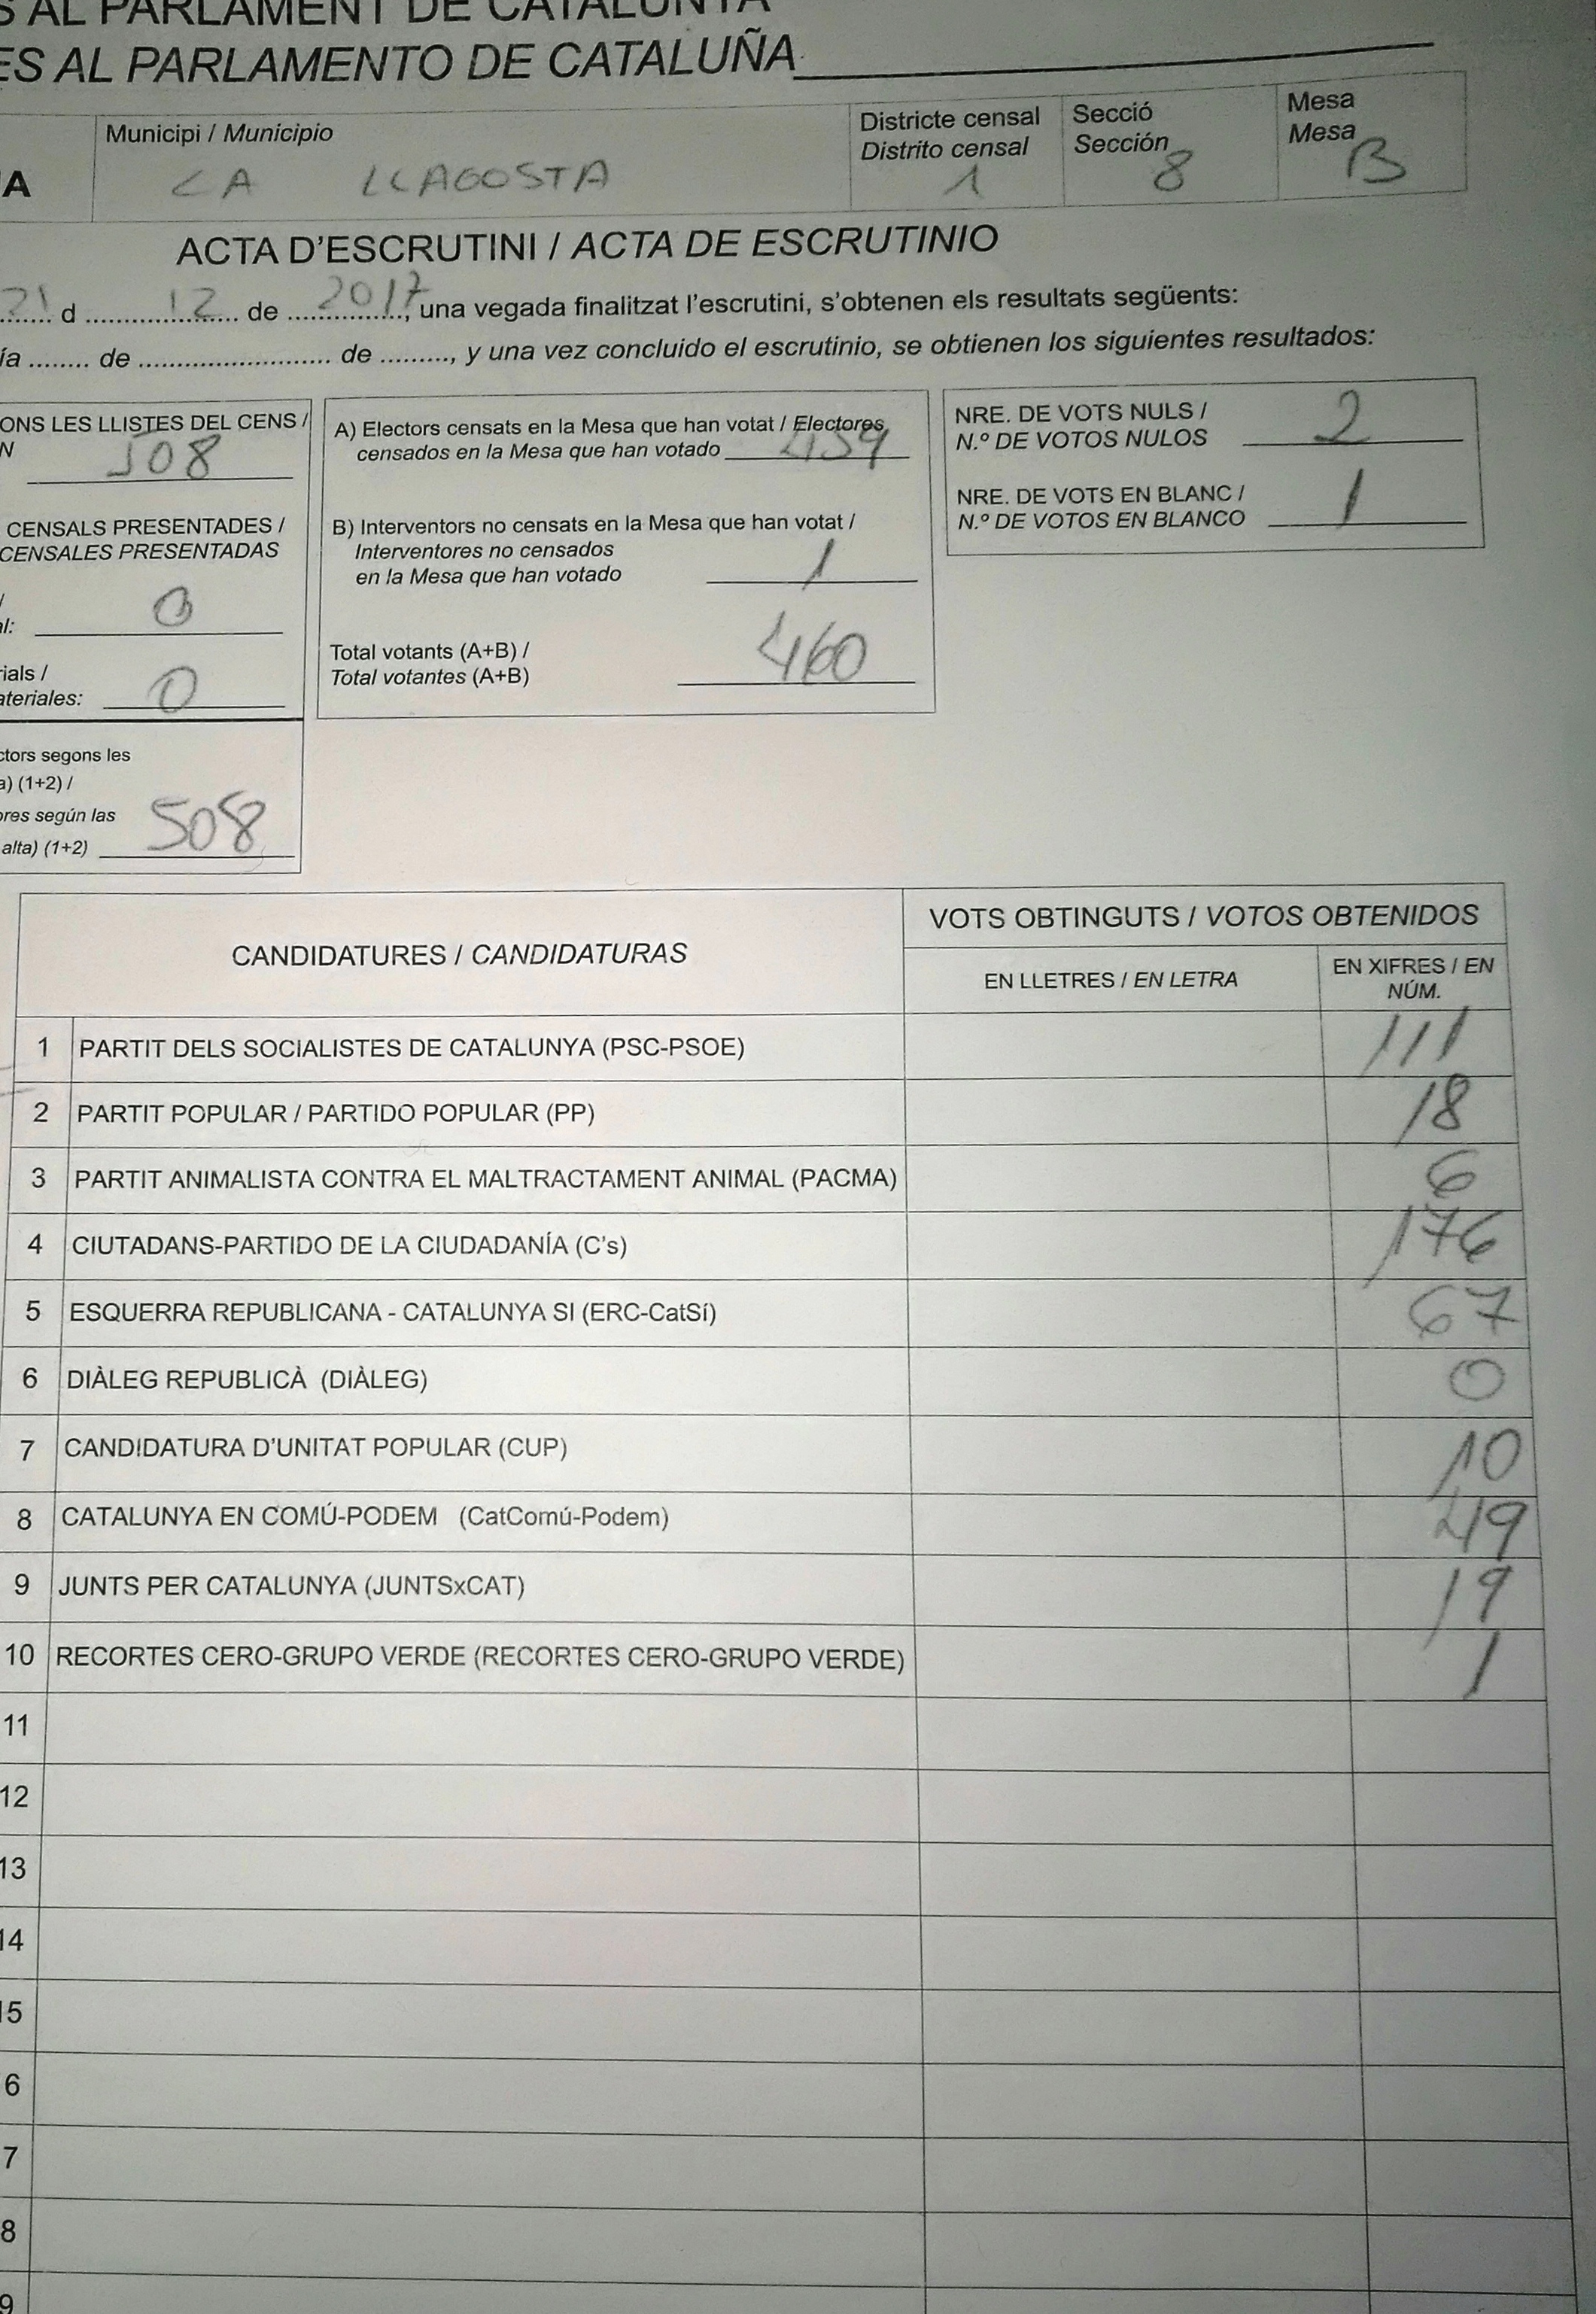 S AL PARLAMENT DE CATALUNYA
ES AL PARLAMENTO DE CATALUÑA
A
Municipi / Municipio
LA LLAGOSTA
Districte censal
Distrito censal
1
Secció
Sección
8
Mesa
Mesa
B
ACTA D'ESCRUTINI / ACTA DE ESCRUTINIO
21 d 12 de 2017, una vegada finalitzat l'escrutini, s'obtenen els resultats següents:
ía ........ de ......................... de ........., y una vez concluido el escrutinio, se obtienen los siguientes resultados:
ONS LES LLISTES DEL CENS /
N
508
CENSALS PRESENTADES /
CENSALES PRESENTADAS
/
al: 0
rials /
ateriales: 0
ctors segons les
a) (1+2) /
ores según las
alta) (1+2) 508
A) Electors censats en la Mesa que han votat / Electores
censados en la Mesa que han votado 459
B) Interventors no censats en la Mesa que han votat /
Interventores no censados
en la Mesa que han votado 1
Total votants (A+B) /
Total votantes (A+B) 460
NRE. DE VOTS NULS /
N.º DE VOTOS NULOS 2
NRE. DE VOTS EN BLANC /
N.º DE VOTOS EN BLANCO 1
CANDIDATURES / CANDIDATURAS
VOTS OBTINGUTS / VOTOS OBTENIDOS
EN LLETRES / EN LETRA
EN XIFRES / EN
NÚM.
1 PARTIT DELS SOCIALISTES DE CATALUNYA (PSC-PSOE) 111
2 PARTIT POPULAR / PARTIDO POPULAR (PP) 18
3 PARTIT ANIMALISTA CONTRA EL MALTRACTAMENT ANIMAL (PACMA) 6
4 CIUTADANS-PARTIDO DE LA CIUDADANÍA (C's) 176
5 ESQUERRA REPUBLICANA - CATALUNYA SI (ERC-CatSí) 67
6 DIÀLEG REPUBLICÀ (DIÀLEG) 0
7 CANDIDATURA D'UNITAT POPULAR (CUP) 10
8 CATALUNYA EN COMÚ-PODEM (CatComú-Podem) 49
9 JUNTS PER CATALUNYA (JUNTSxCAT) 19
10 RECORTES CERO-GRUPO VERDE (RECORTES CERO-GRUPO VERDE) 1
11
12
13
14
15
6
7
8
9